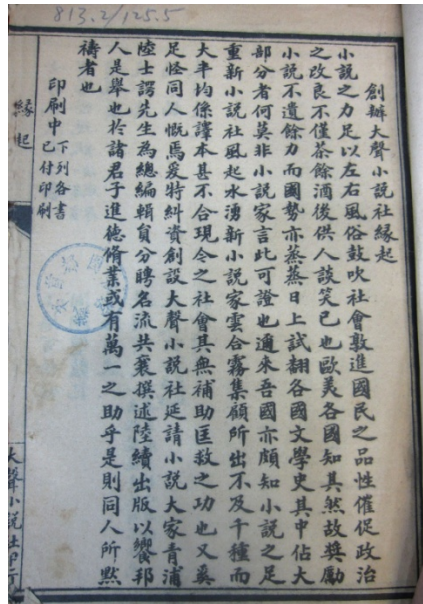 813.2/125.5
創辦大聲小說社緣起
小說之力足以左右風俗鼓吹社會敦進國民之品性催促政治
之改良不僅茶餘酒後供人談笑已也歐美各國知其然故獎勵
小說不遺餘力而國勢亦蒸蒸日上試翻各國文學史其中佔大
部分者何莫非小說家言此可證也邇來吾國亦頗知小說之足
重新小說社風起水湧新小說家雲合霧集顧所出不及千種而
大半均係譯本甚不合現今之社會其無補助匡救之功也又奚
足怪同人慨焉爰特糾資創設大聲小說社延請小說大家青浦
陸士諤先生為總編輯員分聘名流共襄撰述陸續出版以饗邦
人是舉也於諸君子進德脩業或有萬一之助乎是則同人所默
禱者也
印刷中下列各書
已付印刷
緣起
大聲小說社印行